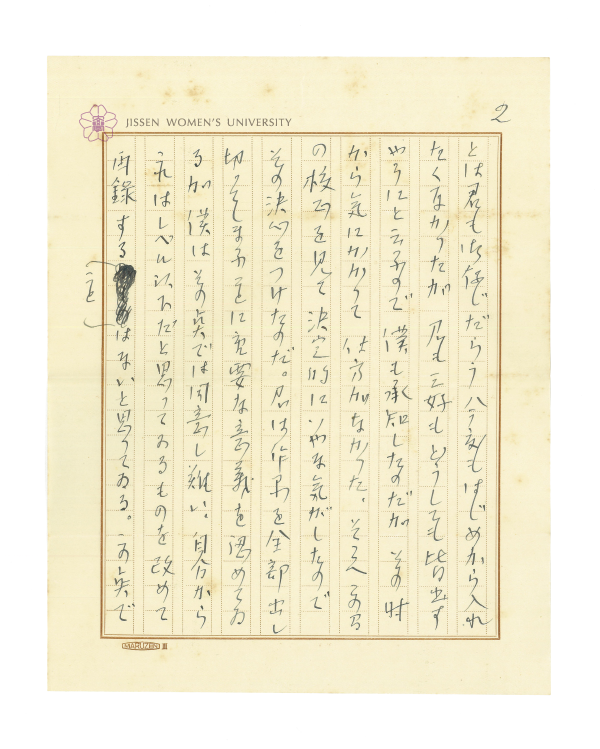 JISSEN WOMEN'S UNIVERSITY
2
とは君も御存じだらう 八号もはじめから入れ
たくなかつたが 君も三好もどうしても皆出す
やうにと云ふので 僕も承知したのだが その時
から気にかかつて 仕方がなかつた。そこへ
の校正を見て 決定的にいやな気がしたので
その決心をつけたのだ。君は作品を全部出し
切つてしまふことに重要な意義を認めてゐ
るが 僕はその点では同意し難い。自分から
これはレベル以下だと思つてゐるものを改めて
再録する
こと
はないと思つてゐる。この点で
MARUZEN